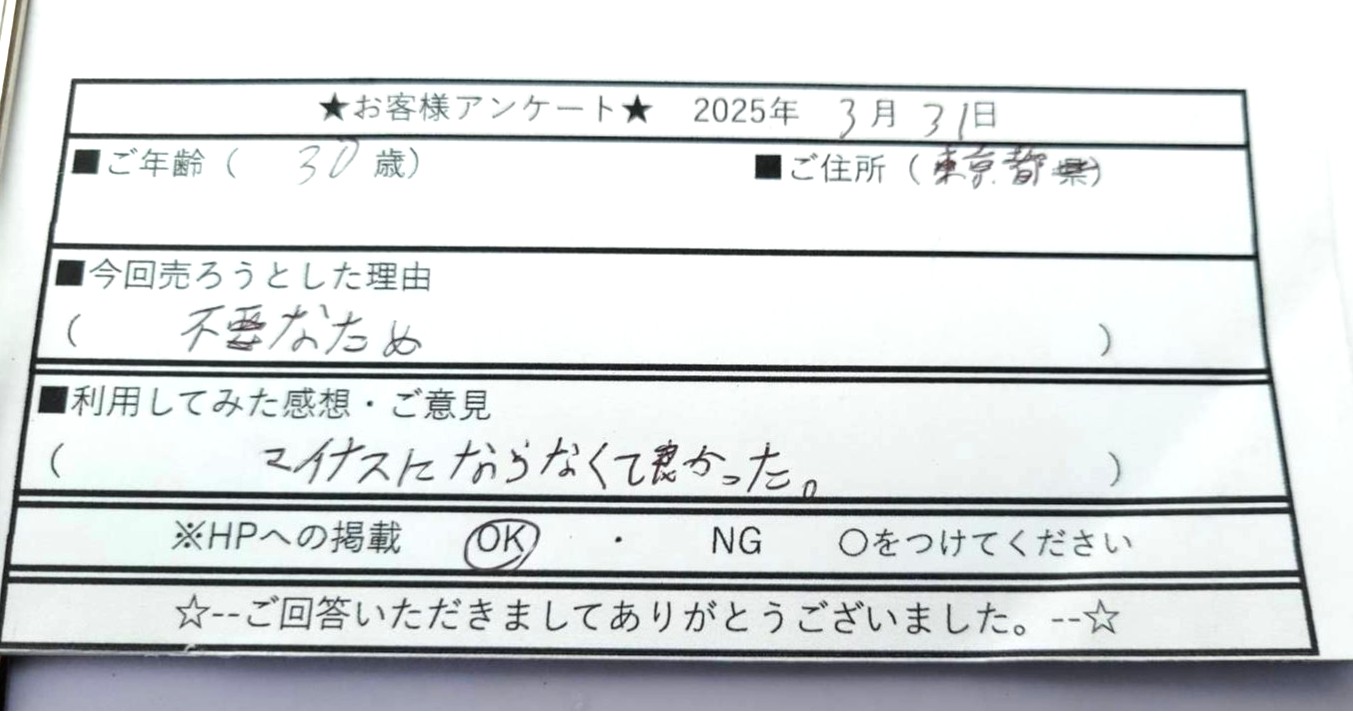 ★お客様アンケート★ 2025年 3月 31日
■ご年齢( 30 歳) ■ご住所(東京都県)
■今回売ろうとした理由
( 不要なため )
■利用してみた感想・ご意見
( マイナスにならなくて良かった。 )
※HPへの掲載 OK ・ NG ○をつけてください
☆--ご回答いただきましてありがとうございました。--☆